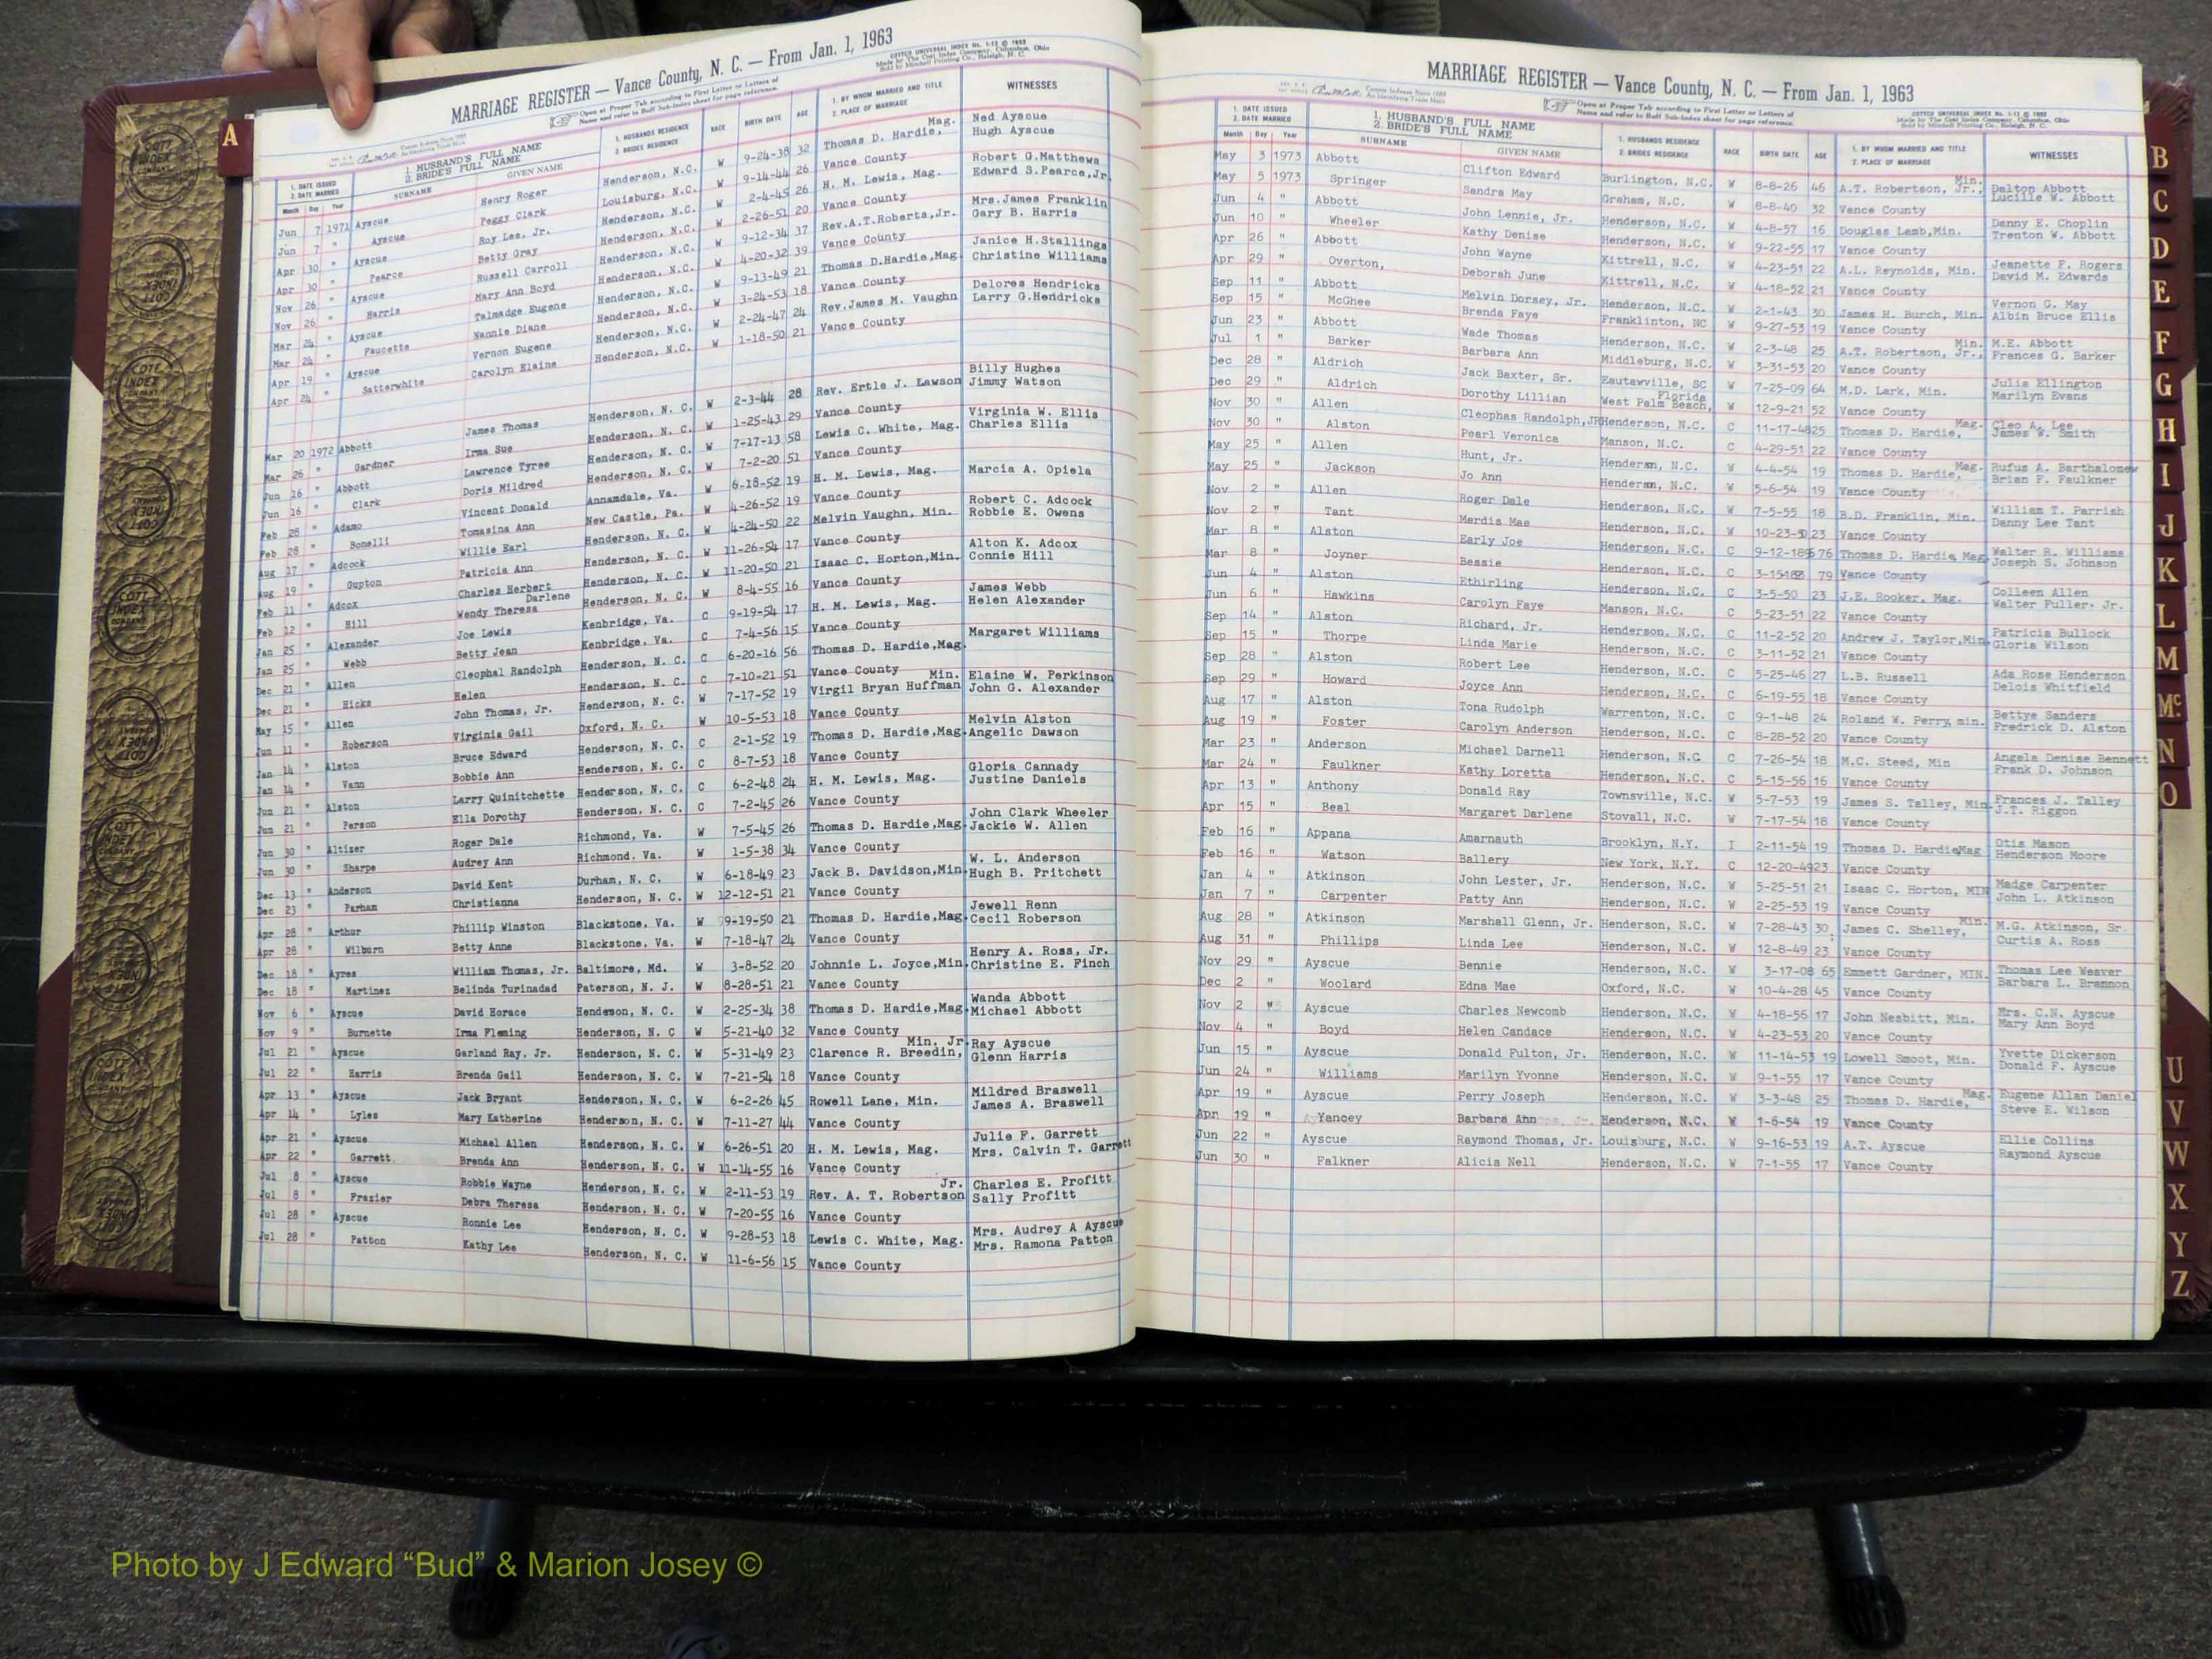 MARRIAGE REGISTER — Vance County, N. C. — From Jan. 1, 1963
COTTCO UNIVERSAL INDEX No. 1-12 © 1953
Made by The Cott Index Company, Columbus, Ohio
Sold by Mitchell Printing Co., Raleigh, N. C.
Open at Proper Tab according to First Letter or Letters of
Name and refer to Buff Sub-Index sheet for page reference.
1. DATE ISSUED 2. DATE MARRIED 1. HUSBAND'S FULL NAME 2. BRIDE'S FULL NAME 1. HUSBANDS RESIDENCE 2. BRIDES RESIDENCE RACE BIRTH DATE AGE 1. BY WHOM MARRIED AND TITLE 2. PLACE OF MARRIAGE WITNESSES
Month Day Year SURNAME GIVEN NAME
A
Jun 7 1971 Ayscue Henry Roger Henderson, N.C. W 9-24-38 32 Thomas D. Hardie, Mag. Ned Ayscue
Jun 7 " Ayscue Peggy Clark Louisburg, N.C. W 9-14-44 26 Vance County Hugh Ayscue
Apr 30 " Ayscue Roy Lee, Jr. Henderson, N.C. W 2-4-45 26 H. M. Lewis, Mag. Robert G.Matthews
Apr 30 " Pearce Betty Gray Henderson, N.C. W 2-26-51 20 Vance County Edward S.Pearce,Jr.
Nov 26 " Ayscue Russell Carroll Henderson, N.C. W 9-12-34 37 Rev.A.T.Roberts,Jr. Mrs.James Franklin
Nov 26 " Harris Mary Ann Boyd Henderson, N.C. W 4-20-32 39 Vance County Gary B. Harris
Mar 24 " Ayscue Talmadge Eugene Henderson, N.C. W 9-13-49 21 Thomas D.Hardie,Mag Janice H.Stallings
Mar 24 " Faucette Nannie Diane Henderson, N.C. W 3-24-53 18 Vance County Christine Williams
Apr 19 " Ayscue Vernon Eugene Henderson, N.C. W 2-24-47 24 Rev.James M. Vaughn Delores Hendricks
Apr 24 " Satterwhite Carolyn Elaine Henderson, N.C. W 1-18-50 21 Vance County Larry G.Hendricks
Mar 20 1972 Abbott James Thomas Henderson, N. C. W 2-3-44 28 Rev. Ertle J. Lawson Billy Hughes
Mar 26 " Gardner Irma Sue Henderson, N. C. W 1-25-43 29 Vance County Jimmy Watson
Jun 16 " Abbott Lawrence Tyree Henderson, N. C. W 7-17-13 58 Lewis C. White, Mag. Virginia W. Ellis
Jun 16 " Clark Doris Mildred Henderson, N. C. W 7-2-20 51 Vance County Charles Ellis
Feb 28 " Adamo Vincent Donald Annamdale, Va. W 6-18-52 19 H. M. Lewis, Mag. Marcia A. Opiela
Feb 28 " Bonelli Tomasina Ann New Castle, Pa. W 4-26-52 19 Vance County
Aug 17 " Adcock Willie Earl Henderson, N. C. W 4-24-50 22 Melvin Vaughn, Min. Robert C. Adcock
Aug 19 " Gupton Patricia Ann Henderson, N. C. W 11-26-54 17 Vance County Robbie E. Owens
Feb 11 " Adcox Charles Herbert Henderson, N. C. W 11-20-50 21 Isaac C. Horton,Min. Alton K. Adcox
Feb 12 " Hill Wendy Theresa Darlene Henderson, N. C. W 8-4-55 16 Vance County Connie Hill
Jan 25 " Alexander Joe Lewis Kenbridge, Va. C 9-19-54 17 H. M. Lewis, Mag. James Webb
Jan 25 " Webb Betty Jean Kenbridge, Va. C 7-4-56 15 Vance County Helen Alexander
Dec 21 " Allen Cleophal Randolph Henderson, N. C. C 6-20-16 56 Thomas D. Hardie,Mag. Margaret Williams
Dec 21 " Hicks Helen Henderson, N. C. C 7-10-21 51 Vance County
May 15 " Allen John Thomas, Jr. Henderson, N. C. W 7-17-52 19 Virgil Bryan Huffman Min. Elaine W. Perkinson
Jun 11 " Roberson Virginia Gail Oxford, N. C. W 10-5-53 18 Vance County John G. Alexander
Jan 14 " Alston Bruce Edward Henderson, N. C. C 2-1-52 19 Thomas D. Hardie,Mag. Melvin Alston
Jan 14 " Vann Bobbie Ann Henderson, N. C. C 8-7-53 18 Vance County Angelic Dawson
Jun 21 " Alston Larry Quinitchette Henderson, N. C. C 6-2-48 24 H. M. Lewis, Mag. Gloria Cannady
Jun 21 " Person Ella Dorothy Henderson, N. C. C 7-2-45 26 Vance County Justine Daniels
Jun 30 " Altizer Roger Dale Richmond, Va. W 7-5-45 26 Thomas D. Hardie,Mag. John Clark Wheeler
Jun 30 " Sharpe Audrey Ann Richmond, Va. W 1-5-38 34 Vance County Jackie W. Allen
Dec 13 " Anderson David Kent Durham, N. C. W 6-18-49 23 Jack B. Davidson,Min. W. L. Anderson
Dec 23 " Parham Christianna Henderson, N. C. W 12-12-51 21 Vance County Hugh B. Pritchett
Apr 28 " Arthur Phillip Winston Blackstone, Va. W 9-19-50 21 Thomas D. Hardie,Mag. Jewell Renn
Apr 28 " Wilburn Betty Anne Blackstone, Va. W 7-18-47 24 Vance County Cecil Roberson
Dec 18 " Ayres William Thomas, Jr. Baltimore, Md. W 3-8-52 20 Johnnie L. Joyce,Min. Henry A. Ross, Jr.
Dec 18 " Martinez Belinda Turinadad Paterson, N. J. W 8-28-51 21 Vance County Christine E. Finch
Nov 6 " Ayscue David Horace Henderson, N. C. W 2-25-34 38 Thomas D. Hardie,Mag. Wanda Abbott
Nov 9 " Burnette Irma Fleming Henderson, N. C W 5-21-40 32 Vance County Michael Abbott
Jul 21 " Ayscue Garland Ray, Jr. Henderson, N. C. W 5-31-49 23 Clarence R. Breedin, Min. Jr. Ray Ayscue
Jul 22 " Harris Brenda Gail Henderson, N. C. W 7-21-54 18 Vance County Glenn Harris
Apr 13 " Ayscue Jack Bryant Henderson, N. C. W 6-2-26 45 Rowell Lane, Min. Mildred Braswell
Apr 14 " Lyles Mary Katherine Henderson, N. C. W 7-11-27 44 Vance County James A. Braswell
Apr 21 " Ayscue Michael Allen Henderson, N. C. W 6-26-51 20 H. M. Lewis, Mag. Julie F. Garrett
Apr 22 " Garrett Brenda Ann Henderson, N. C. W 11-14-55 16 Vance County Mrs. Calvin T. Garrett
Jul 8 " Ayscue Robbie Wayne Henderson, N. C. W 2-11-53 19 Rev. A. T. Robertson Jr. Charles E. Profitt
Jul 8 " Frazier Debra Theresa Henderson, N. C. W 7-20-55 16 Vance County Sally Profitt
Jul 28 " Ayscue Ronnie Lee Henderson, N. C. W 9-28-53 18 Lewis C. White, Mag. Mrs. Audrey A Ayscue
Jul 28 " Patton Kathy Lee Henderson, N. C. W 11-6-56 15 Vance County Mrs. Ramona Patton
MARRIAGE REGISTER — Vance County, N. C. — From Jan. 1, 1963
Open at Proper Tab according to First Letter or Letters of
Name and refer to Buff Sub-Index sheet for page reference.
COTTCO UNIVERSAL INDEX No. 1-12 © 1953
Made by The Cott Index Company, Columbus, Ohio
Sold by Mitchell Printing Co., Raleigh, N. C.
1. DATE ISSUED 2. DATE MARRIED 1. HUSBAND'S FULL NAME 2. BRIDE'S FULL NAME 1. HUSBANDS RESIDENCE 2. BRIDES RESIDENCE RACE BIRTH DATE AGE 1. BY WHOM MARRIED AND TITLE 2. PLACE OF MARRIAGE WITNESSES
Month Day Year SURNAME GIVEN NAME
May 3 1973 Abbott Clifton Edward Burlington, N.C. W 8-8-26 46 A.T. Robertson, Jr., Min. Dalton Abbott
May 5 1973 Springer Sandra May Graham, N.C. W 8-8-40 32 Vance County Lucille W. Abbott
Jun 4 " Abbott John Lennie, Jr. Henderson, N.C. W 4-8-57 16 Douglas Lamb,Min. Danny E. Choplin
Jun 10 " Wheeler Kathy Denise Henderson, N.C. W 9-22-55 17 Vance County Trenton W. Abbott
Apr 26 " Abbott John Wayne Kittrell, N.C. W 4-23-51 22 A.L. Reynolds, Min. Jeanette F. Rogers
Apr 29 " Overton, Deborah June Kittrell, N.C. W 4-18-52 21 Vance County David M. Edwards
Sep 11 " Abbott Melvin Dorsey, Jr. Henderson, N.C. W 2-1-43 30 James H. Burch, Min. Vernon G. May
Sep 15 " McGhee Brenda Faye Franklinton, NC W 9-27-53 19 Vance County Albin Bruce Ellis
Jun 23 " Abbott Wade Thomas Henderson, N.C. W 2-3-48 25 A.T. Robertson, Jr., Min. M.E. Abbott
Jul 1 " Barker Barbara Ann Middleburg, N.C. W 3-31-53 20 Vance County Frances G. Barker
Dec 28 " Aldrich Jack Baxter, Sr. Eautawville, SC W 7-25-09 64 M.D. Lark, Min. Julia Ellington
Dec 29 " Aldrich Dorothy Lillian West Palm Beach, Florida W 12-9-21 52 Vance County Marilyn Evans
Nov 30 " Allen Cleophas Randolph,JR Henderson, N.C. C 11-17-48 25 Thomas D. Hardie, Mag. Cleo A. Lee
Nov 30 " Alston Pearl Veronica Manson, N.C. C 4-29-51 22 Vance County James W. Smith
May 25 " Allen Hunt, Jr. Henderson, N.C. W 4-4-54 19 Thomas D. Hardie, Mag. Rufus A. Barthalomew
May 25 " Jackson Jo Ann Henderson, N.C. W 5-6-54 19 Vance County Brian F. Faulkner
Nov 2 " Allen Roger Dale Henderson, N.C. W 7-5-55 18 B.D. Franklin, Min. William T. Parrish
Nov 2 " Tant Merdis Mae Henderson, N.C. W 10-23-50 23 Vance County Danny Lee Tant
Mar 8 " Alston Early Joe Henderson, N.C. C 9-12-1896 76 Thomas D. Hardie, Mag Walter R. Williams
Mar 8 " Joyner Bessie Henderson, N.C. C 3-15- 79 Vance County Joseph S. Johnson
Jun 4 " Alston Ethirling Henderson, N.C. C 3-5-50 23 J.E. Rooker, Mag. Colleen Allen
Jun 6 " Hawkins Carolyn Faye Manson, N.C. C 5-23-51 22 Vance County Walter Fuller, Jr.
Sep 14 " Alston Richard, Jr. Henderson, N.C. C 11-2-52 20 Andrew J. Taylor,Min. Patricia Bullock
Sep 15 " Thorpe Linda Marie Henderson, N.C. C 3-11-52 21 Vance County Gloria Wilson
Sep 28 " Alston Robert Lee Henderson, N.C. C 5-25-46 27 L.B. Russell Ada Rose Henderson
Sep 29 " Howard Joyce Ann Henderson, N.C. C 6-19-55 18 Vance County Delois Whitfield
Aug 17 " Alston Tona Rudolph Warrenton, N.C. C 9-1-48 24 Roland W. Perry, min. Bettye Sanders
Aug 19 " Foster Carolyn Anderson Henderson, N.C. C 8-28-52 20 Vance County Fredrick D. Alston
Mar 23 " Anderson Michael Darnell Henderson, N.C C 7-26-54 18 M.C. Steed, Min Angela Denise Bennett
Mar 24 " Faulkner Kathy Loretta Henderson, N.C. C 5-15-56 16 Vance County Frank D. Johnson
Apr 13 " Anthony Donald Ray Townsville, N.C. W 5-7-53 19 James S. Talley, Min. Frances J. Talley
Apr 15 " Beal Margaret Darlene Stovall, N.C. W 7-17-54 18 Vance County J.T. Riggon
Feb 16 " Appana Amarnauth Brooklyn, N.Y. I 2-11-54 19 Thomas D. Hardie Mag Otis Mason
Feb 16 " Watson Ballery New York, N.Y. C 12-20-49 23 Vance County Henderson Moore
Jan 4 " Atkinson John Lester, Jr. Henderson, N.C. W 5-25-51 21 Isaac C. Horton, MIN Madge Carpenter
Jan 7 " Carpenter Patty Ann Henderson, N.C. W 2-25-53 19 Vance County John L. Atkinson
Aug 28 " Atkinson Marshall Glenn, Jr. Henderson, N.C. W 7-28-43 30 James C. Shelley, Min. M.G. Atkinson, Sr
Aug 31 " Phillips Linda Lee Henderson, N.C. W 12-8-49 23 Vance County Curtis A. Ross
Nov 29 " Ayscue Bennie Henderson, N.C. W 3-17-08 65 Emmett Gardner, MIN. Thomas Lee Weaver
Dec 2 " Woolard Edna Mae Oxford, N.C. W 10-4-28 45 Vance County Barbara L. Brannon
Nov 2 " Ayscue Charles Newcomb Henderson, N.C. W 4-18-56 17 John Nesbitt, Min. Mrs. C.N. Ayscue
Nov 4 " Boyd Helen Candace Henderson, N.C. W 4-23-53 20 Vance County Mary Ann Boyd
Jun 15 " Ayscue Donald Fulton, Jr. Henderson, N.C. W 11-14-53 19 Lowell Smoot, Min. Yvette Dickerson
Jun 24 " Williams Marilyn Yvonne Henderson, N.C. W 9-1-55 17 Vance County Donald F. Ayscue
Apr 19 " Ayscue Perry Joseph Henderson, N.C. W 3-3-48 25 Thomas D. Hardie, Mag. Eugene Allan Daniel
Apr 19 " Yancey Barbara Ann Henderson, N.C. W 1-6-54 19 Vance County Steve E. Wilson
Jun 22 " Ayscue Raymond Thomas, Jr. Louisburg, N.C. W 9-16-53 19 A.T. Ayscue Ellie Collins
Jun 30 " Falkner Alicia Nell Henderson, N.C. W 7-1-55 17 Vance County Raymond Ayscue
B
C
D
E
F
G
H
I
J
K
L
M
Mc
N
O
U
V
W
X
Y
Z
COTT INDEX COMPANY
Photo by J Edward “Bud” & Marion Josey ©